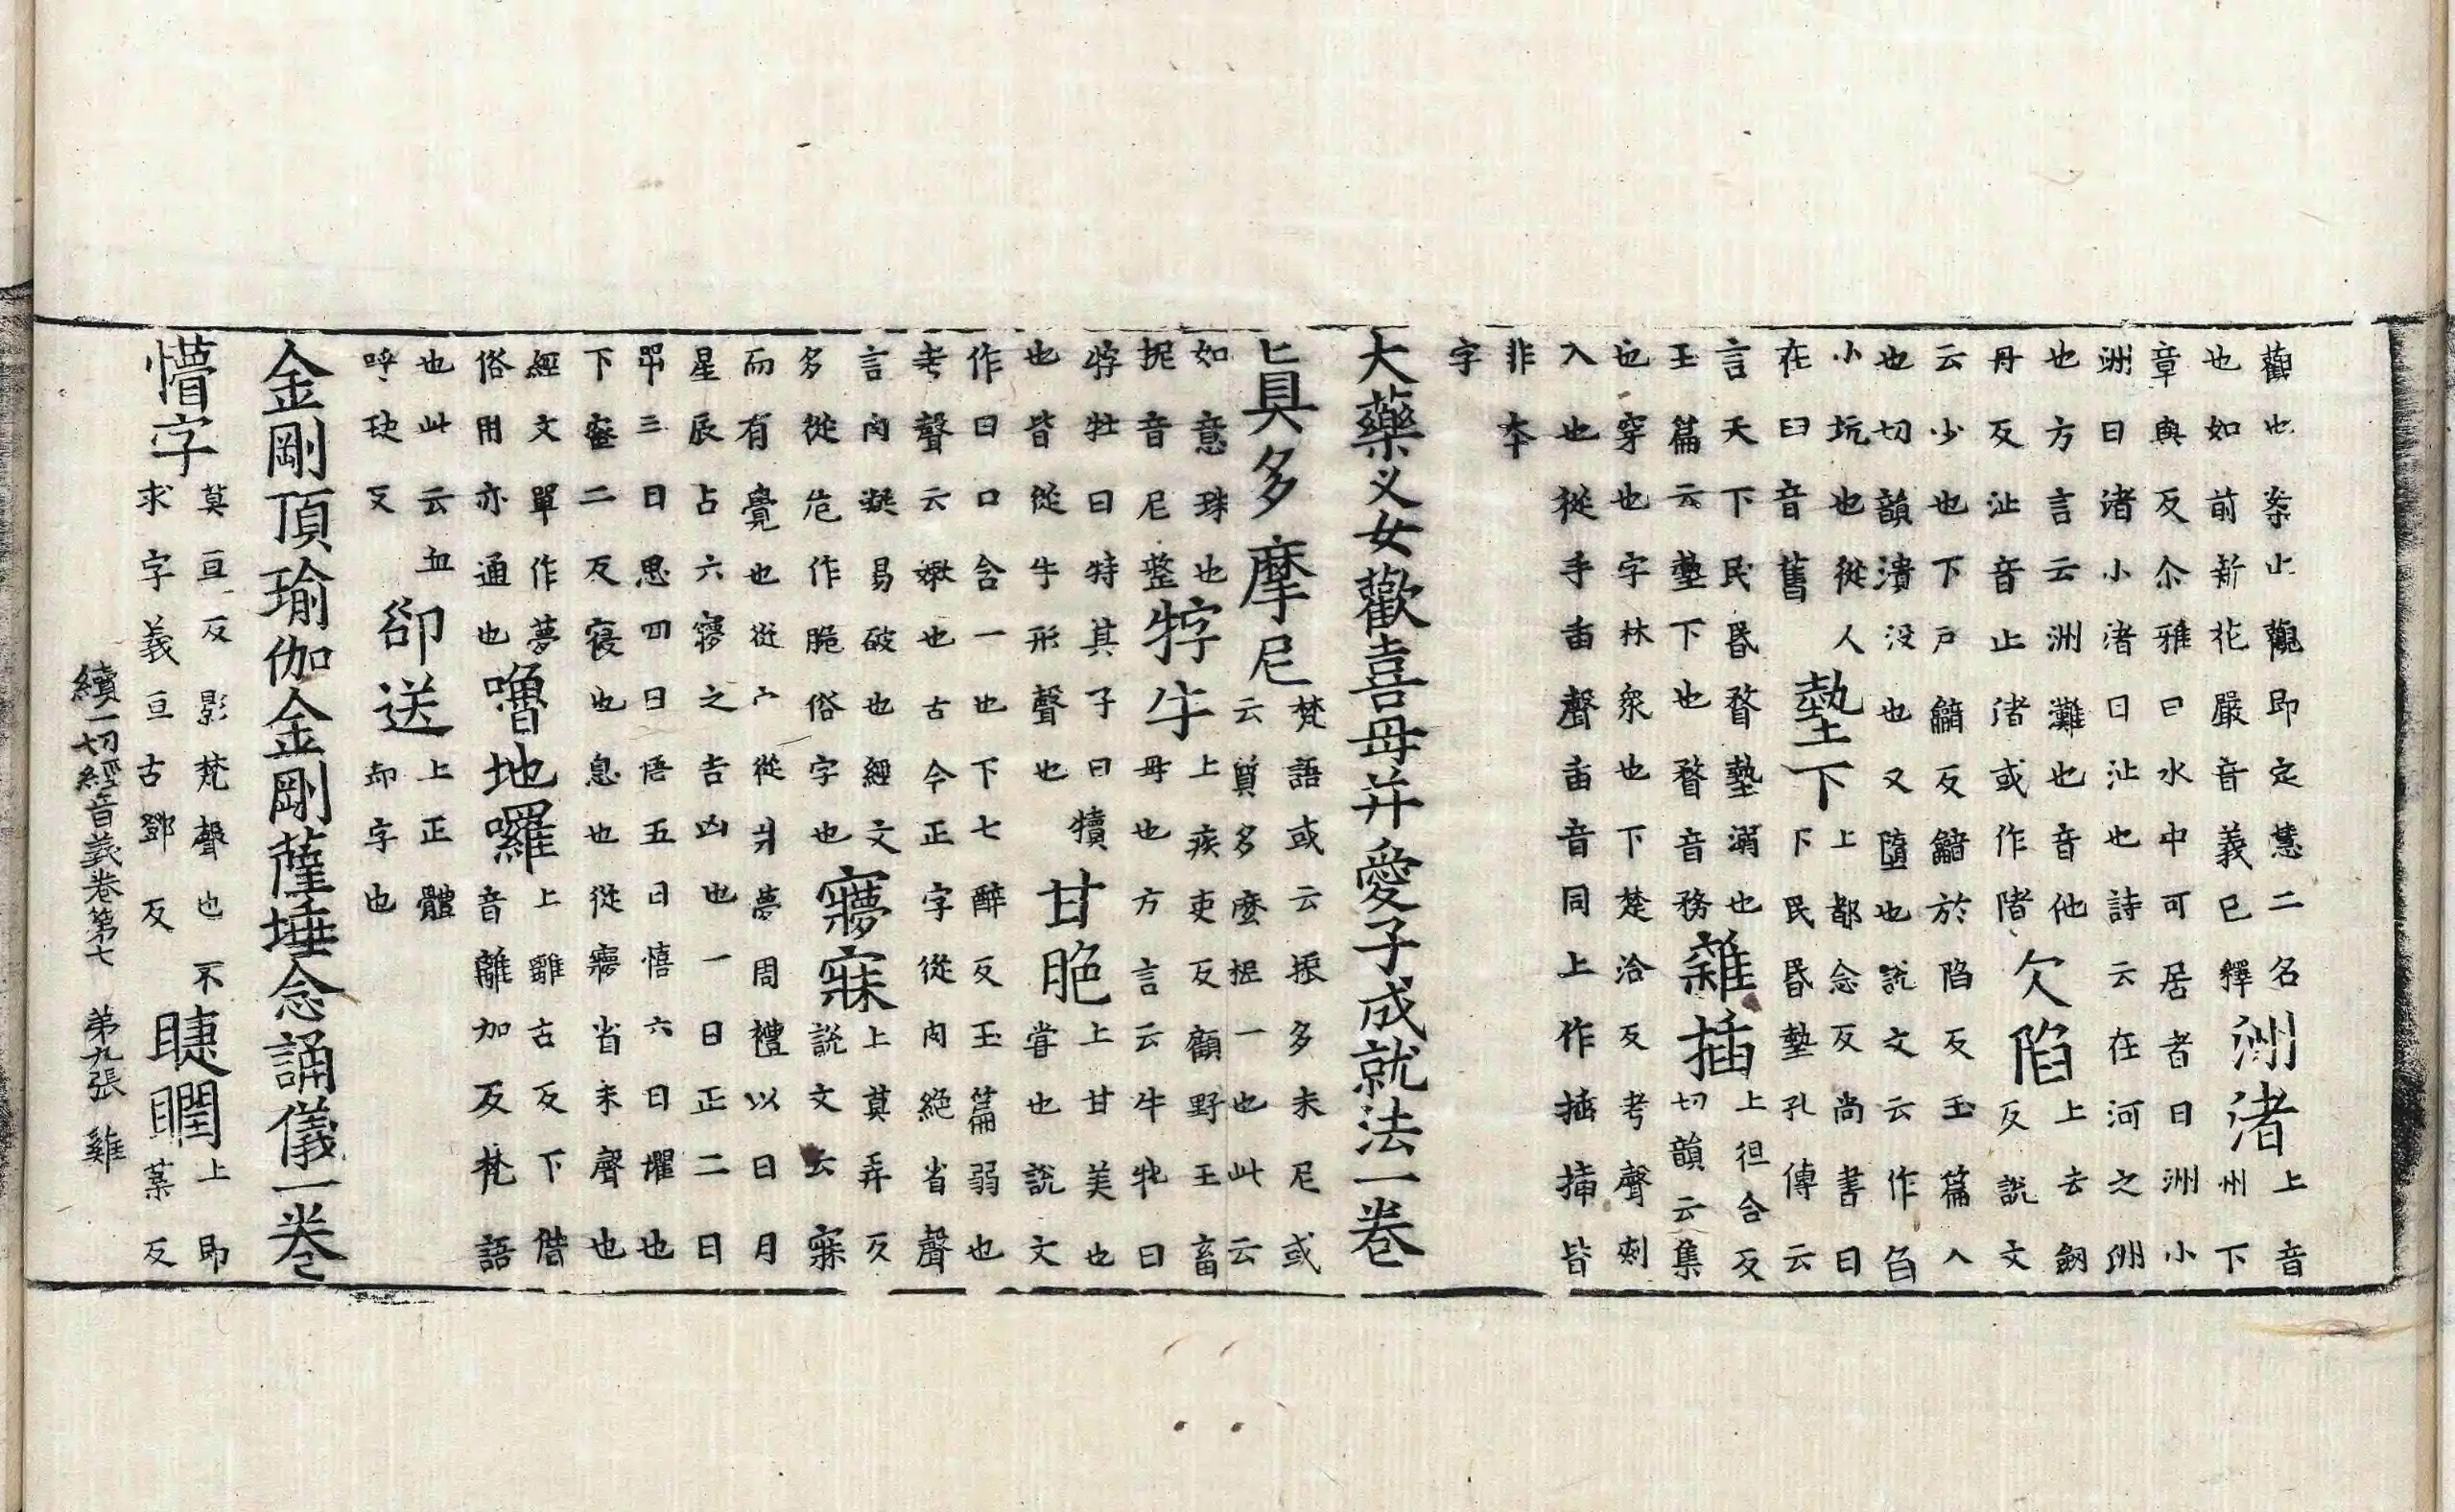 觀也桉止觀即定慧二名
也如前新花嚴音義已釋
洲渚
上音
州下
章與反尒雅曰水中可居者曰洲小
洲曰渚小渚曰沚也詩云在河之洲
也方言云洲灘也音他
丹反沚音止渚或作陼
欠陷
上去劒
反說文
云少也下戶韽反韽於陷反玉篇入
也切韻潰没也又墮也說文云作臽
小坑也從人
在臼音舊
墊下
上都念反尚書曰
下民昏墊孔傳云
言天下民昏瞀墊溺也
玉篇云墊下也瞀音務
雜插
上徂合反
切韻云集
也穿也字林衆也下楚洽反考聲刾
入也從手臿聲臿音同上作挿揷皆
非夲
字
大藥叉女歡喜母并愛子成就法一卷
㫖真多摩尼
梵語或云振多末尼或
云質多麽抳一也此云
如意珠也
抳音尼整
牸牛
上疾吏反顧野王畜
母也方言云牛牝曰
牸牡曰特其子曰犢
也皆從牛形聲也
甘脆
上甘美也
甞也說文
作曰口含一也下七醉反玉篇弱也
考聲云嫩也古今正字從肉絕省聲
言肉易破也經文
多從危作脆俗字也
寱寐
上莫弄反
說文云寐
而有覺也從宀從爿夢周禮以日月
星辰占六寢之吉凶也一曰正二曰
三曰思四曰悟五曰憘六曰懼也
下蜜二反寢也息也從寢省未聲也
經文單作夢
俗用亦通也
嚕地囉
上離古反下借
音離加反梵語
也此云血
呼玦反
卻送
上正體
却字也
金剛頂瑜伽金剛薩埵念誦儀一卷
懵字
莫亘反影梵聲也不
求字義亘古鄧反
睫瞤
上即
葉反
續一切經音義卷第七 第九張 雞